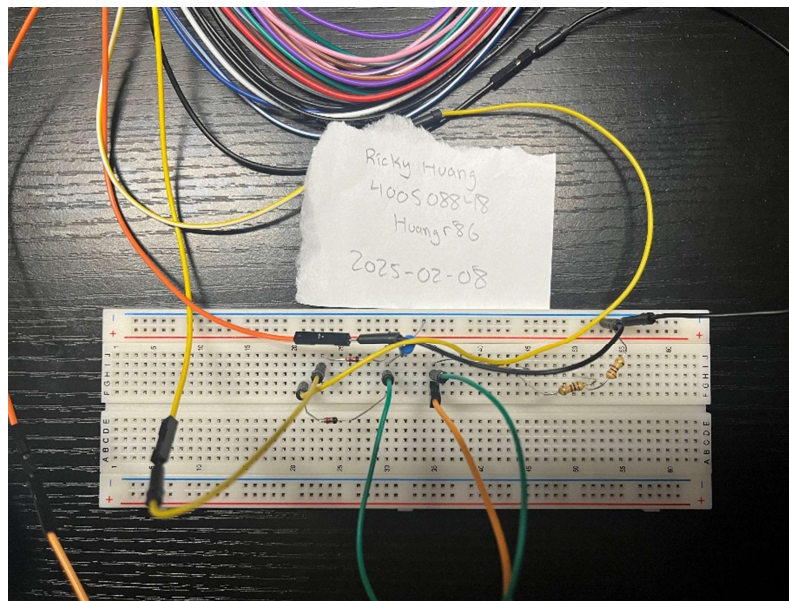 Ricky Huang
400508848
Huangr86
2025-02-08